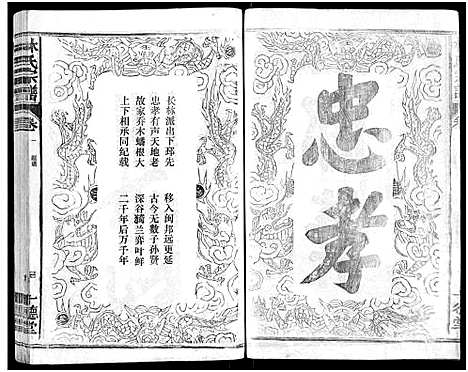 忠孝
长林派出下邳先
忠孝有声天地老
故家乔木蟠根大
上下相承同纪载
移入闽邦远更延
古今无数子孙贤
深谷猗兰奕叶鲜
二千年后万千年
林氏宗谱
卷一
十德堂